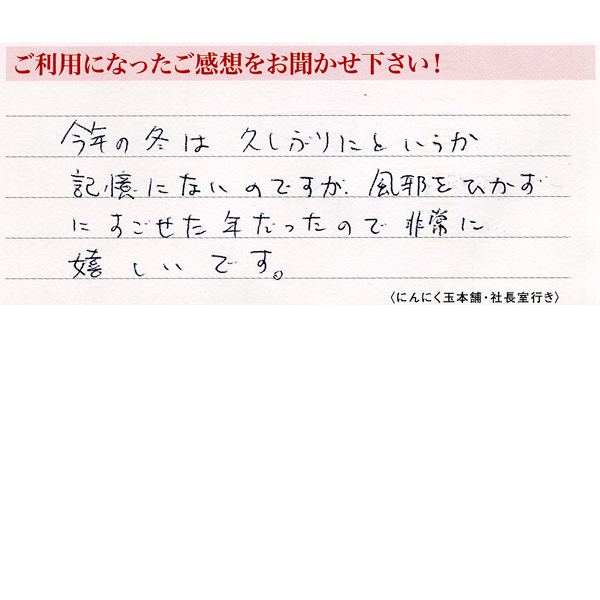 ご利用になったご感想をお聞かせ下さい!
今年の冬は 久しぶりにというか
記憶にないのですが、風邪をひかず
にすごせた年だったので非常に
嬉しいです。
〈にんにく玉本舗・社長室行き〉